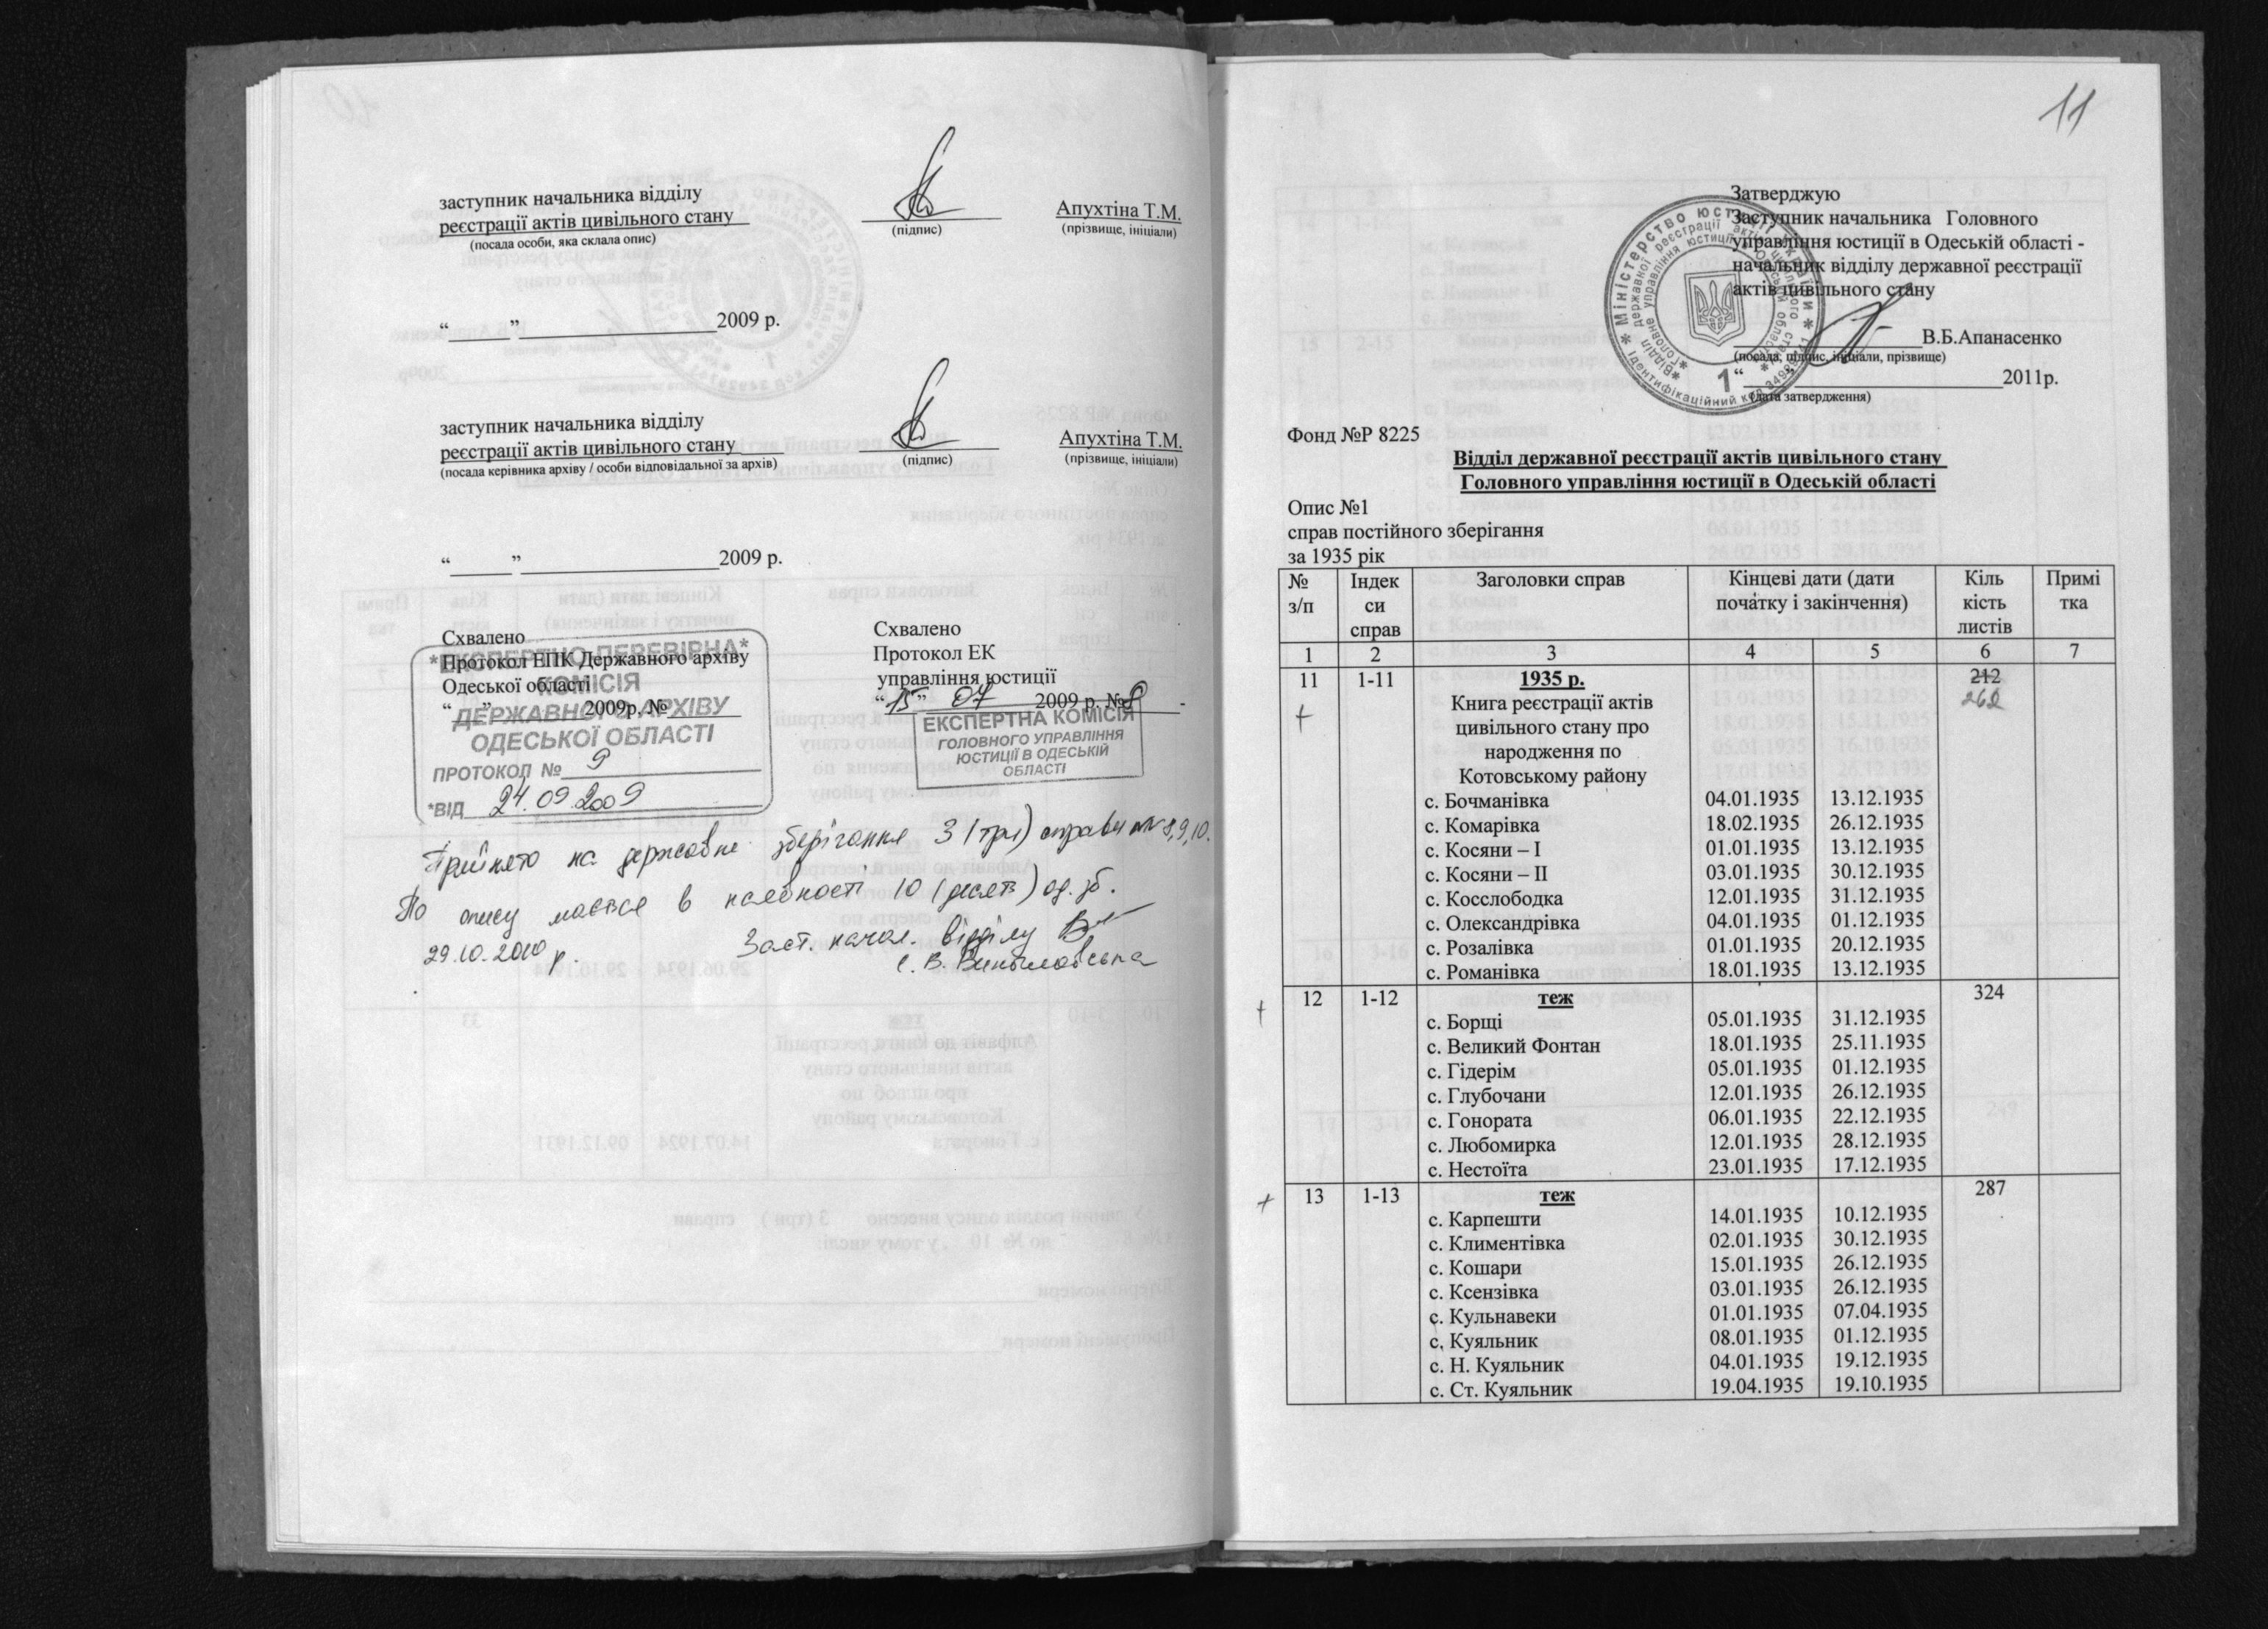 заступник начальника відділу
реєстрації актів цивільного стану
(посада особи, яка склала опис)
(підпис)
Апухтіна Т.М.
(прізвище, ініціали)
“______”____________________2009 р.
заступник начальника відділу
реєстрації актів цивільного стану
(посада керівника архіву / особи відповідальної за архів)
(підпис)
Апухтіна Т.М.
(прізвище, ініціали)
“______”____________________2009 р.
Схвалено
Протокол ЕПК Державного архіву
Одеської області
“___”__________2009р. №_______
*ЕКСПЕРТНО-ПЕРЕВІРНА*
КОМІСІЯ
ДЕРЖАВНОГО АРХІВУ
ОДЕСЬКОЇ ОБЛАСТІ
ПРОТОКОЛ № 9
*ВІД 24.09.2009
Схвалено
Протокол ЕК
управління юстиції
“15” 07 2009 р. №8
ЕКСПЕРТНА КОМІСІЯ
ГОЛОВНОГО УПРАВЛІННЯ
ЮСТИЦІЇ В ОДЕСЬКІЙ
ОБЛАСТІ
Прийнято на державне зберігання 3 (три) справи №№ 8,9,10.
По опису мається в наявності 10 (десять) од. зб.
29.10.2010 р. Заст. начал. відділу
11
Затверджую
Заступник начальника Головного
управління юстиції в Одеській області -
начальник відділу державної реєстрації
актів цивільного стану
__________________В.Б.Апанасенко
(посада, підпис, ініціали, прізвище)
“____”____________________2011р.
(дата затвердження)
* Міністерство юстиції України *
Ідентифікаційний код
1
Фонд №Р 8225
Відділ державної реєстрації актів цивільного стану
Головного управління юстиції в Одеській області
Опис №1
справ постійного зберігання
за 1935 рік
№ з/п Індек си справ Заголовки справ Кінцеві дати (дати початку і закінчення) Кіль кість листів Примі тка
1 2 3 4 5 6 7
11 1-11 1935 р. 212
Книга реєстрації актів 262
цивільного стану про
народження по
Котовському району
с. Бочманівка 04.01.1935 13.12.1935
с. Комарівка 18.02.1935 26.12.1935
с. Косяни – І 01.01.1935 13.12.1935
с. Косяни – ІІ 03.01.1935 30.12.1935
с. Косслободка 12.01.1935 31.12.1935
с. Олександрівка 04.01.1935 01.12.1935
с. Розалівка 01.01.1935 20.12.1935
с. Романівка 18.01.1935 13.12.1935
12 1-12 теж 324
с. Борщі 05.01.1935 31.12.1935
с. Великий Фонтан 18.01.1935 25.11.1935
с. Гідерім 05.01.1935 01.12.1935
с. Глубочани 12.01.1935 26.12.1935
с. Гонората 06.01.1935 22.12.1935
с. Любомирка 12.01.1935 28.12.1935
с. Нестоїта 23.01.1935 17.12.1935
13 1-13 теж 287
с. Карпешти 14.01.1935 10.12.1935
с. Климентівка 02.01.1935 30.12.1935
с. Кошари 15.01.1935 26.12.1935
с. Ксензівка 03.01.1935 26.12.1935
с. Кульнавеки 01.01.1935 07.04.1935
с, Куяльник 08.01.1935 01.12.1935
с. Н. Куяльник 04.01.1935 19.12.1935
с. Ст. Куяльник 19.04.1935 19.10.1935